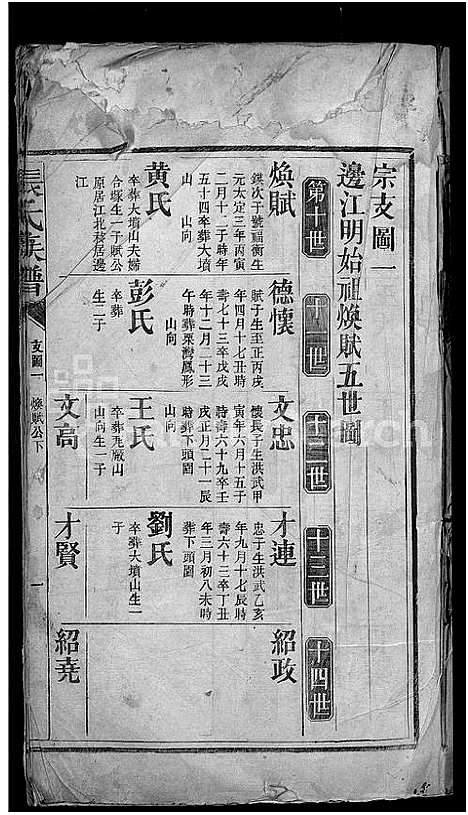 宗支圖一
邊江明始祖煥賦五世圖
第十世
十一世
十二世
十三世
十四世
煥賦
鉄次子號福衡生
元太定三年丙寅
二月十二子時年
五十四卒葬大墳
山 山向
黄氏
卒葬大墳山夫婦
合塚生一子賦公
原居江北移居邊
江
德懷
賦子生至正丙戌
年四月十七丑時
壽七十三卒戊戌
年十二月二十三
午時葬栗灣鳳形
山向
彭氏
卒葬
生二子
文忠
懷長子生洪武甲
寅年六月十五子
時壽六十九卒壬
戌正月二十一辰
時葬下頭圖
山向
王氏
卒葬九廠山
山向生一子
文高
才連
忠子生洪武乙亥
年九月十七辰時
壽六十三卒丁丑
年三月初八未時
葬下頭圖
劉氏
卒葬大墳山生二
子
才賢
紹政
紹堯
氏族譜
支圖一
煥賦公下
一